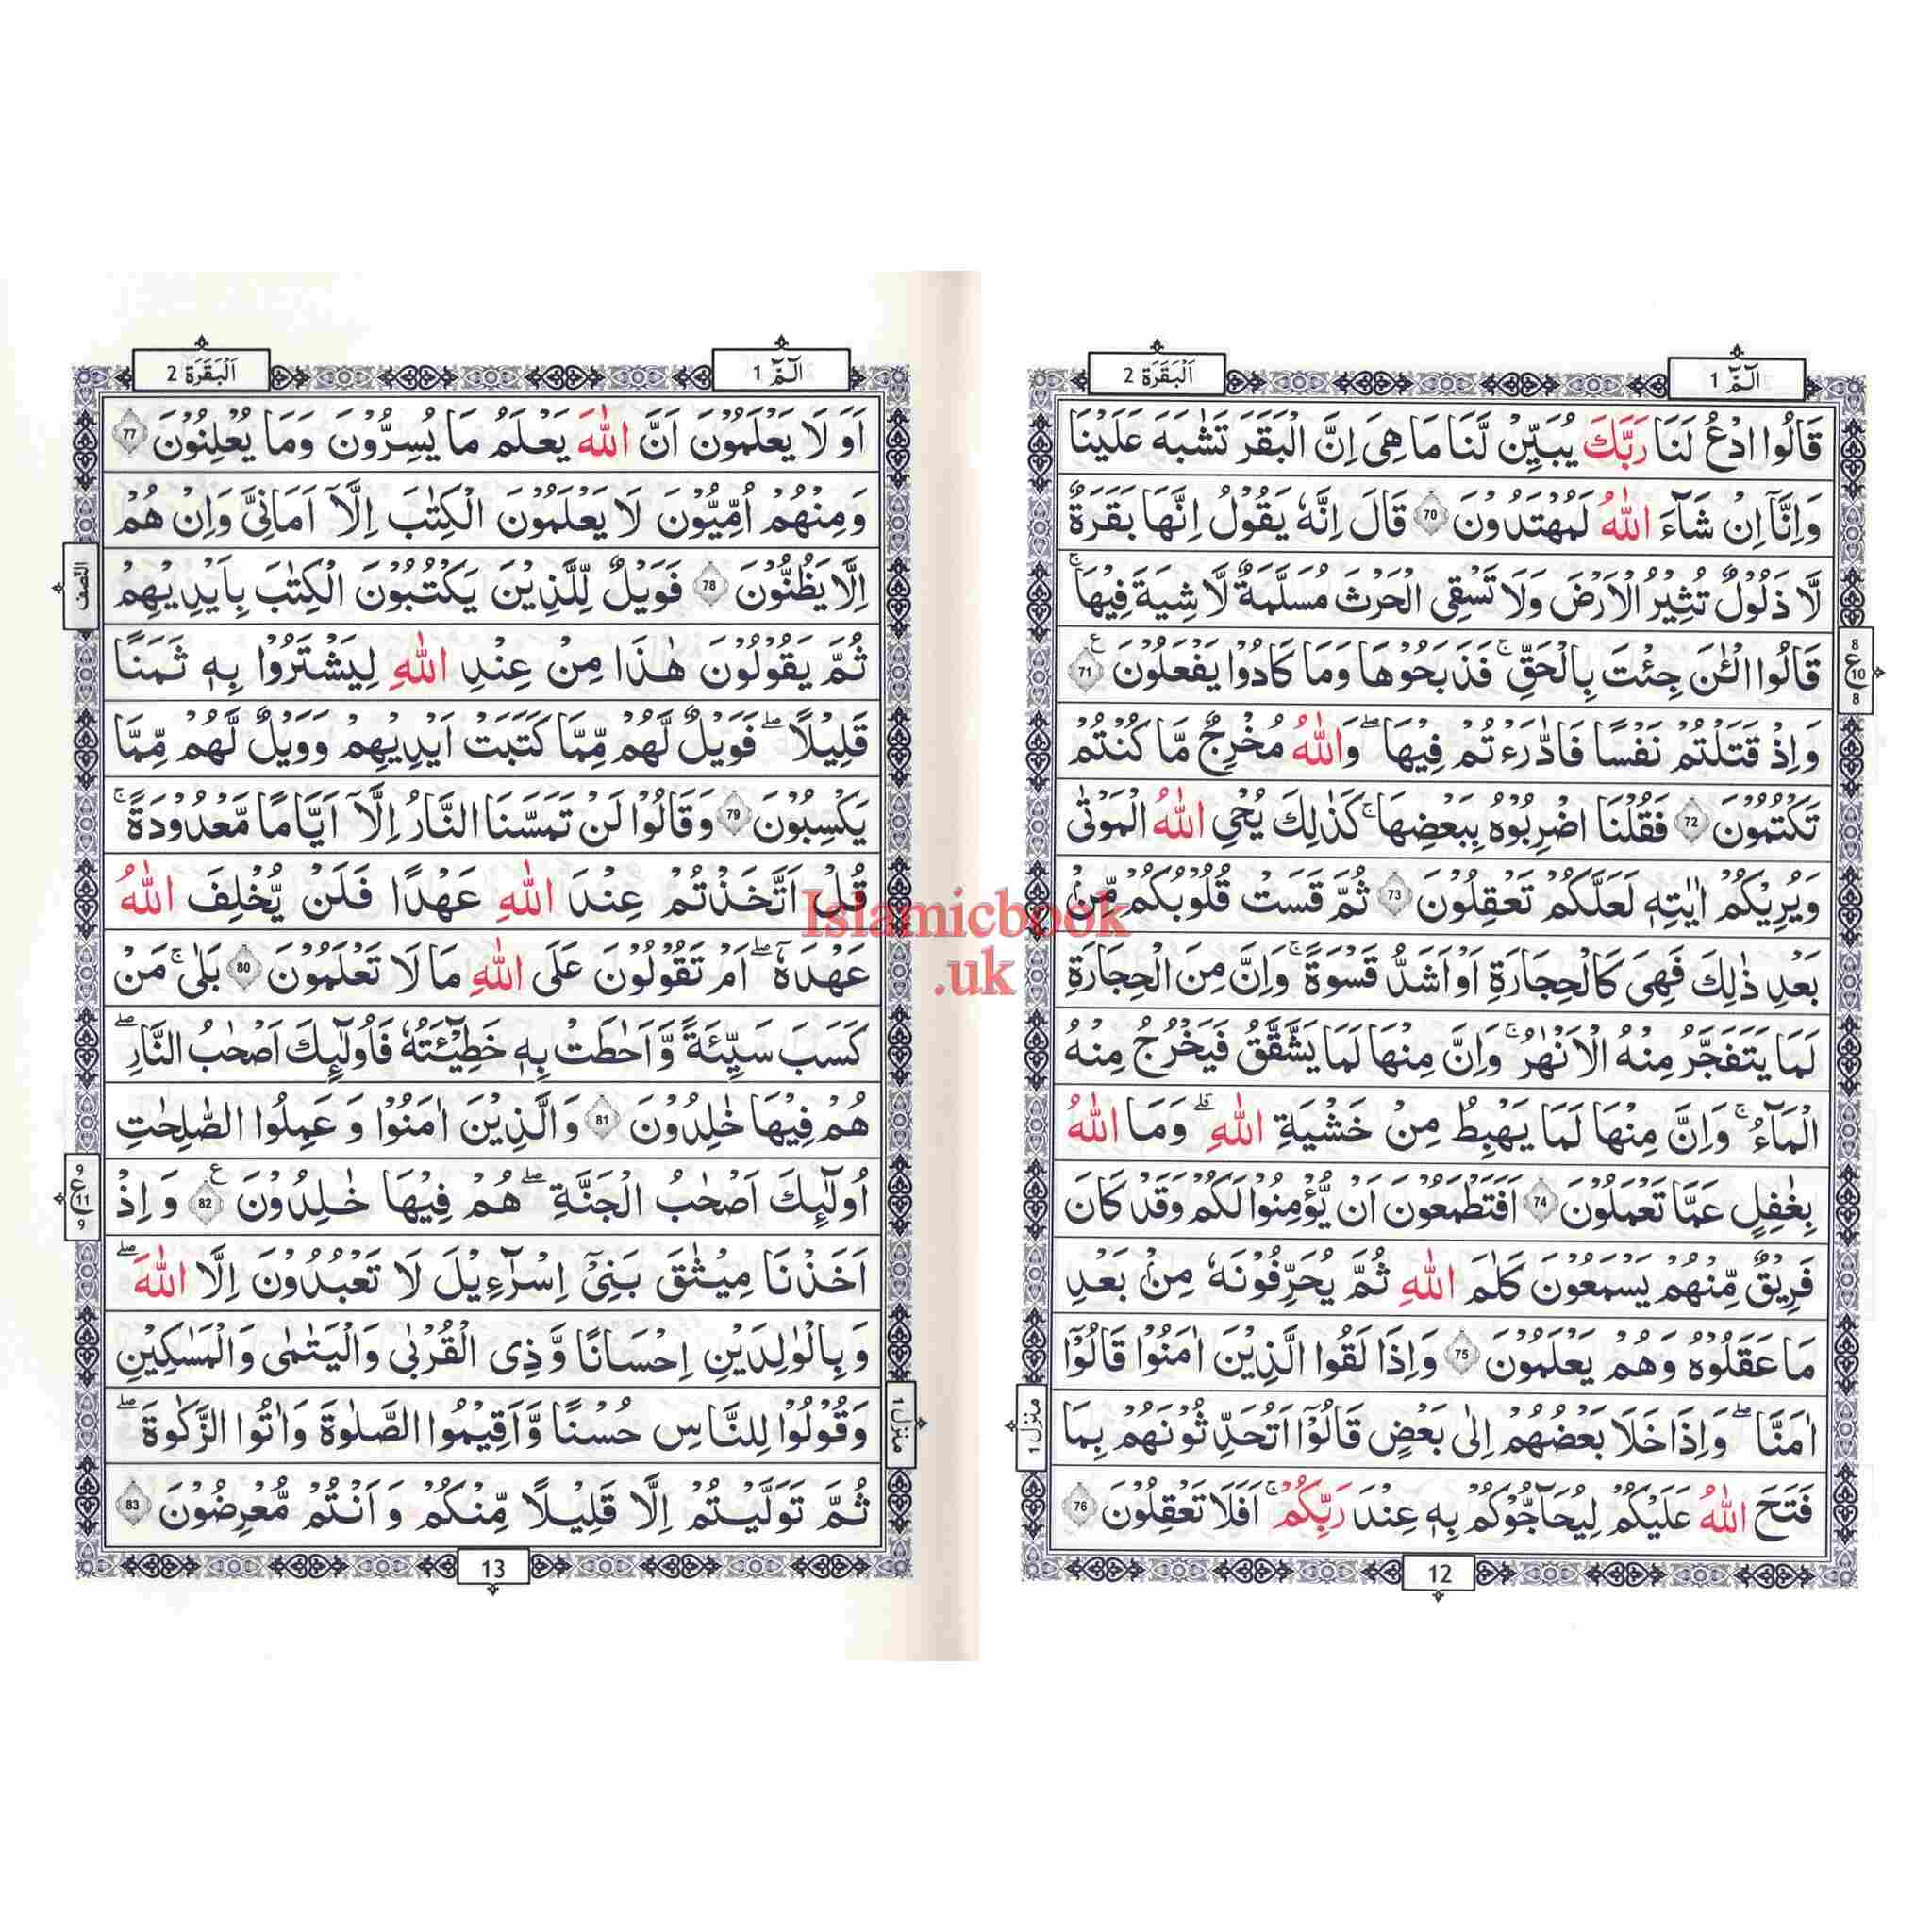 الٓمّٓ 1
اَلْبَقَرَة 2
قَالُوا ادْعُ لَنَا رَبَّكَ يُبَيِّنْ لَّنَا مَا هِىَ اِنَّ الْبَقَرَ تَشٰبَهَ عَلَيْنَا
وَاِنَّاۤ اِنْ شَآءَ اللّٰهُ لَمُهْتَدُوْنَ 70 قَالَ اِنَّهٗ يَقُوْلُ اِنَّهَا بَقَرَةٌ
لَّا ذَلُوْلٌ تُثِيْرُ الْاَرْضَ وَلَا تَسْقِى الْحَرْثَ مُسَلَّمَةٌ لَّا شِيَةَ فِيْهَا ۚ
قَالُوا الْـٰٔنَ جِئْتَ بِالْحَقِّ ۚ فَذَبَحُوْهَا وَمَا كَادُوْا يَفْعَلُوْنَ 71 ع
8
ع
10
8
وَاِذْ قَتَلْتُمْ نَفْسًا فَادّٰرَءْتُمْ فِيْهَا ۖ وَاللّٰهُ مُخْرِجٌ مَّا كُنْتُمْ
تَكْتُمُوْنَ 72 فَقُلْنَا اضْرِبُوْهُ بِبَعْضِهَا ۚ كَذٰلِكَ يُحْىِ اللّٰهُ الْمَوْتٰى
وَيُرِيْكُمْ اٰيٰتِهٖ لَعَلَّكُمْ تَعْقِلُوْنَ 73 ثُمَّ قَسَتْ قُلُوْبُكُمْ مِّنْۢ
بَعْدِ ذٰلِكَ فَهِىَ كَالْحِجَارَةِ اَوْ اَشَدُّ قَسْوَةً ۚ وَاِنَّ مِنَ الْحِجَارَةِ
لَمَا يَتَفَجَّرُ مِنْهُ الْاَنْهٰرُ ۚ وَاِنَّ مِنْهَا لَمَا يَشَّقَّقُ فَيَخْرُجُ مِنْهُ
الْمَآءُ ۚ وَاِنَّ مِنْهَا لَمَا يَهْبِطُ مِنْ خَشْيَةِ اللّٰهِ ۗ وَمَا اللّٰهُ
بِغٰفِلٍ عَمَّا تَعْمَلُوْنَ 74 اَفَتَطْمَعُوْنَ اَنْ يُّؤْمِنُوْا لَكُمْ وَقَدْ كَانَ
فَرِيْقٌ مِّنْهُمْ يَسْمَعُوْنَ كَلٰمَ اللّٰهِ ثُمَّ يُحَرِّفُوْنَهٗ مِنْۢ بَعْدِ
مَا عَقَلُوْهُ وَهُمْ يَعْلَمُوْنَ 75 وَاِذَا لَقُوا الَّذِيْنَ اٰمَنُوْا قَالُوْۤا
اٰمَنَّا ۖ وَاِذَا خَلَا بَعْضُهُمْ اِلٰى بَعْضٍ قَالُوْۤا اَتُحَدِّثُوْنَهُمْ بِمَا
منزل 1
فَتَحَ اللّٰهُ عَلَيْكُمْ لِيُحَآجُّوْكُمْ بِهٖ عِنْدَ رَبِّكُمْ ۚ اَفَلَا تَعْقِلُوْنَ 76
12
الٓمّٓ 1
اَلْبَقَرَة 2
اَوَ لَا يَعْلَمُوْنَ اَنَّ اللّٰهَ يَعْلَمُ مَا يُسِرُّوْنَ وَمَا يُعْلِنُوْنَ 77
وَمِنْهُمْ اُمِّيُّوْنَ لَا يَعْلَمُوْنَ الْكِتٰبَ اِلَّاۤ اَمَانِىَّ وَاِنْ هُمْ
اِلَّا يَظُنُّوْنَ 78 فَوَيْلٌ لِّلَّذِيْنَ يَكْتُبُوْنَ الْكِتٰبَ بِاَيْدِيْهِمْ
النّصف
ثُمَّ يَقُوْلُوْنَ هٰذَا مِنْ عِنْدِ اللّٰهِ لِيَشْتَرُوْا بِهٖ ثَمَنًا
قَلِيْلًا ۖ فَوَيْلٌ لَّهُمْ مِّمَّا كَتَبَتْ اَيْدِيْهِمْ وَوَيْلٌ لَّهُمْ مِّمَّا
يَكْسِبُوْنَ 79 وَقَالُوْا لَنْ تَمَسَّنَا النَّارُ اِلَّاۤ اَيَّامًا مَّعْدُوْدَةً ۚ
قُلْ اَتَّخَذْتُمْ عِنْدَ اللّٰهِ عَهْدًا فَلَنْ يُّخْلِفَ اللّٰهُ
عَهْدَهٗۤ ۖ اَمْ تَقُوْلُوْنَ عَلَى اللّٰهِ مَا لَا تَعْلَمُوْنَ 80 بَلٰى ۚ مَنْ
كَسَبَ سَيِّئَةً وَّاَحَاطَتْ بِهٖ خَطِيْٓـَٔتُهٗ فَاُولٰٓئِكَ اَصْحٰبُ النَّارِ ۖ
هُمْ فِيْهَا خٰلِدُوْنَ 81 وَالَّذِيْنَ اٰمَنُوْا وَ عَمِلُوا الصّٰلِحٰتِ
اُولٰٓئِكَ اَصْحٰبُ الْجَنَّةِ ۖ هُمْ فِيْهَا خٰلِدُوْنَ 82 ع وَ اِذْ
9
ع
11
9
اَخَذْنَا مِيْثٰقَ بَنِىْۤ اِسْرَآءِيْلَ لَا تَعْبُدُوْنَ اِلَّا اللّٰهَ ۖ
وَ بِالْوٰلِدَيْنِ اِحْسَانًا وَّ ذِى الْقُرْبٰى وَالْيَتٰمٰى وَالْمَسٰكِيْنِ
وَقُوْلُوْا لِلنَّاسِ حُسْنًا وَّاَقِيْمُوا الصَّلٰوةَ وَاٰتُوا الزَّكٰوةَ ۖ
منزل 1
ثُمَّ تَوَلَّيْتُمْ اِلَّا قَلِيْلًا مِّنْكُمْ وَ اَنْتُمْ مُّعْرِضُوْنَ 83
13
Islamicbook
.uk